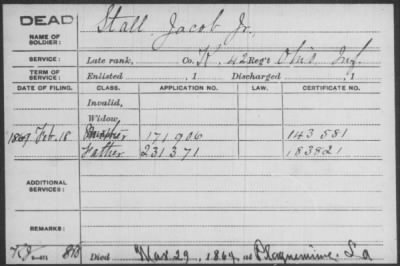 DEAD
NAME OF SOLDIER: Stall, Jacob Jr.
SERVICE: Late rank, Co. K, 42 Reg't Ohio Inf.
TERM OF SERVICE: Enlisted , 1 Discharged , 1
DATE OF FILING. CLASS. APPLICATION NO. LAW. CERTIFICATE NO.
Invalid,
Widow,
1869 Feb. 18 Mother 171 906 143 581
Father 231 371 183821
ADDITIONAL SERVICES:
REMARKS:
3-471 Died Mar 29, 1864, at Plaquemine, La